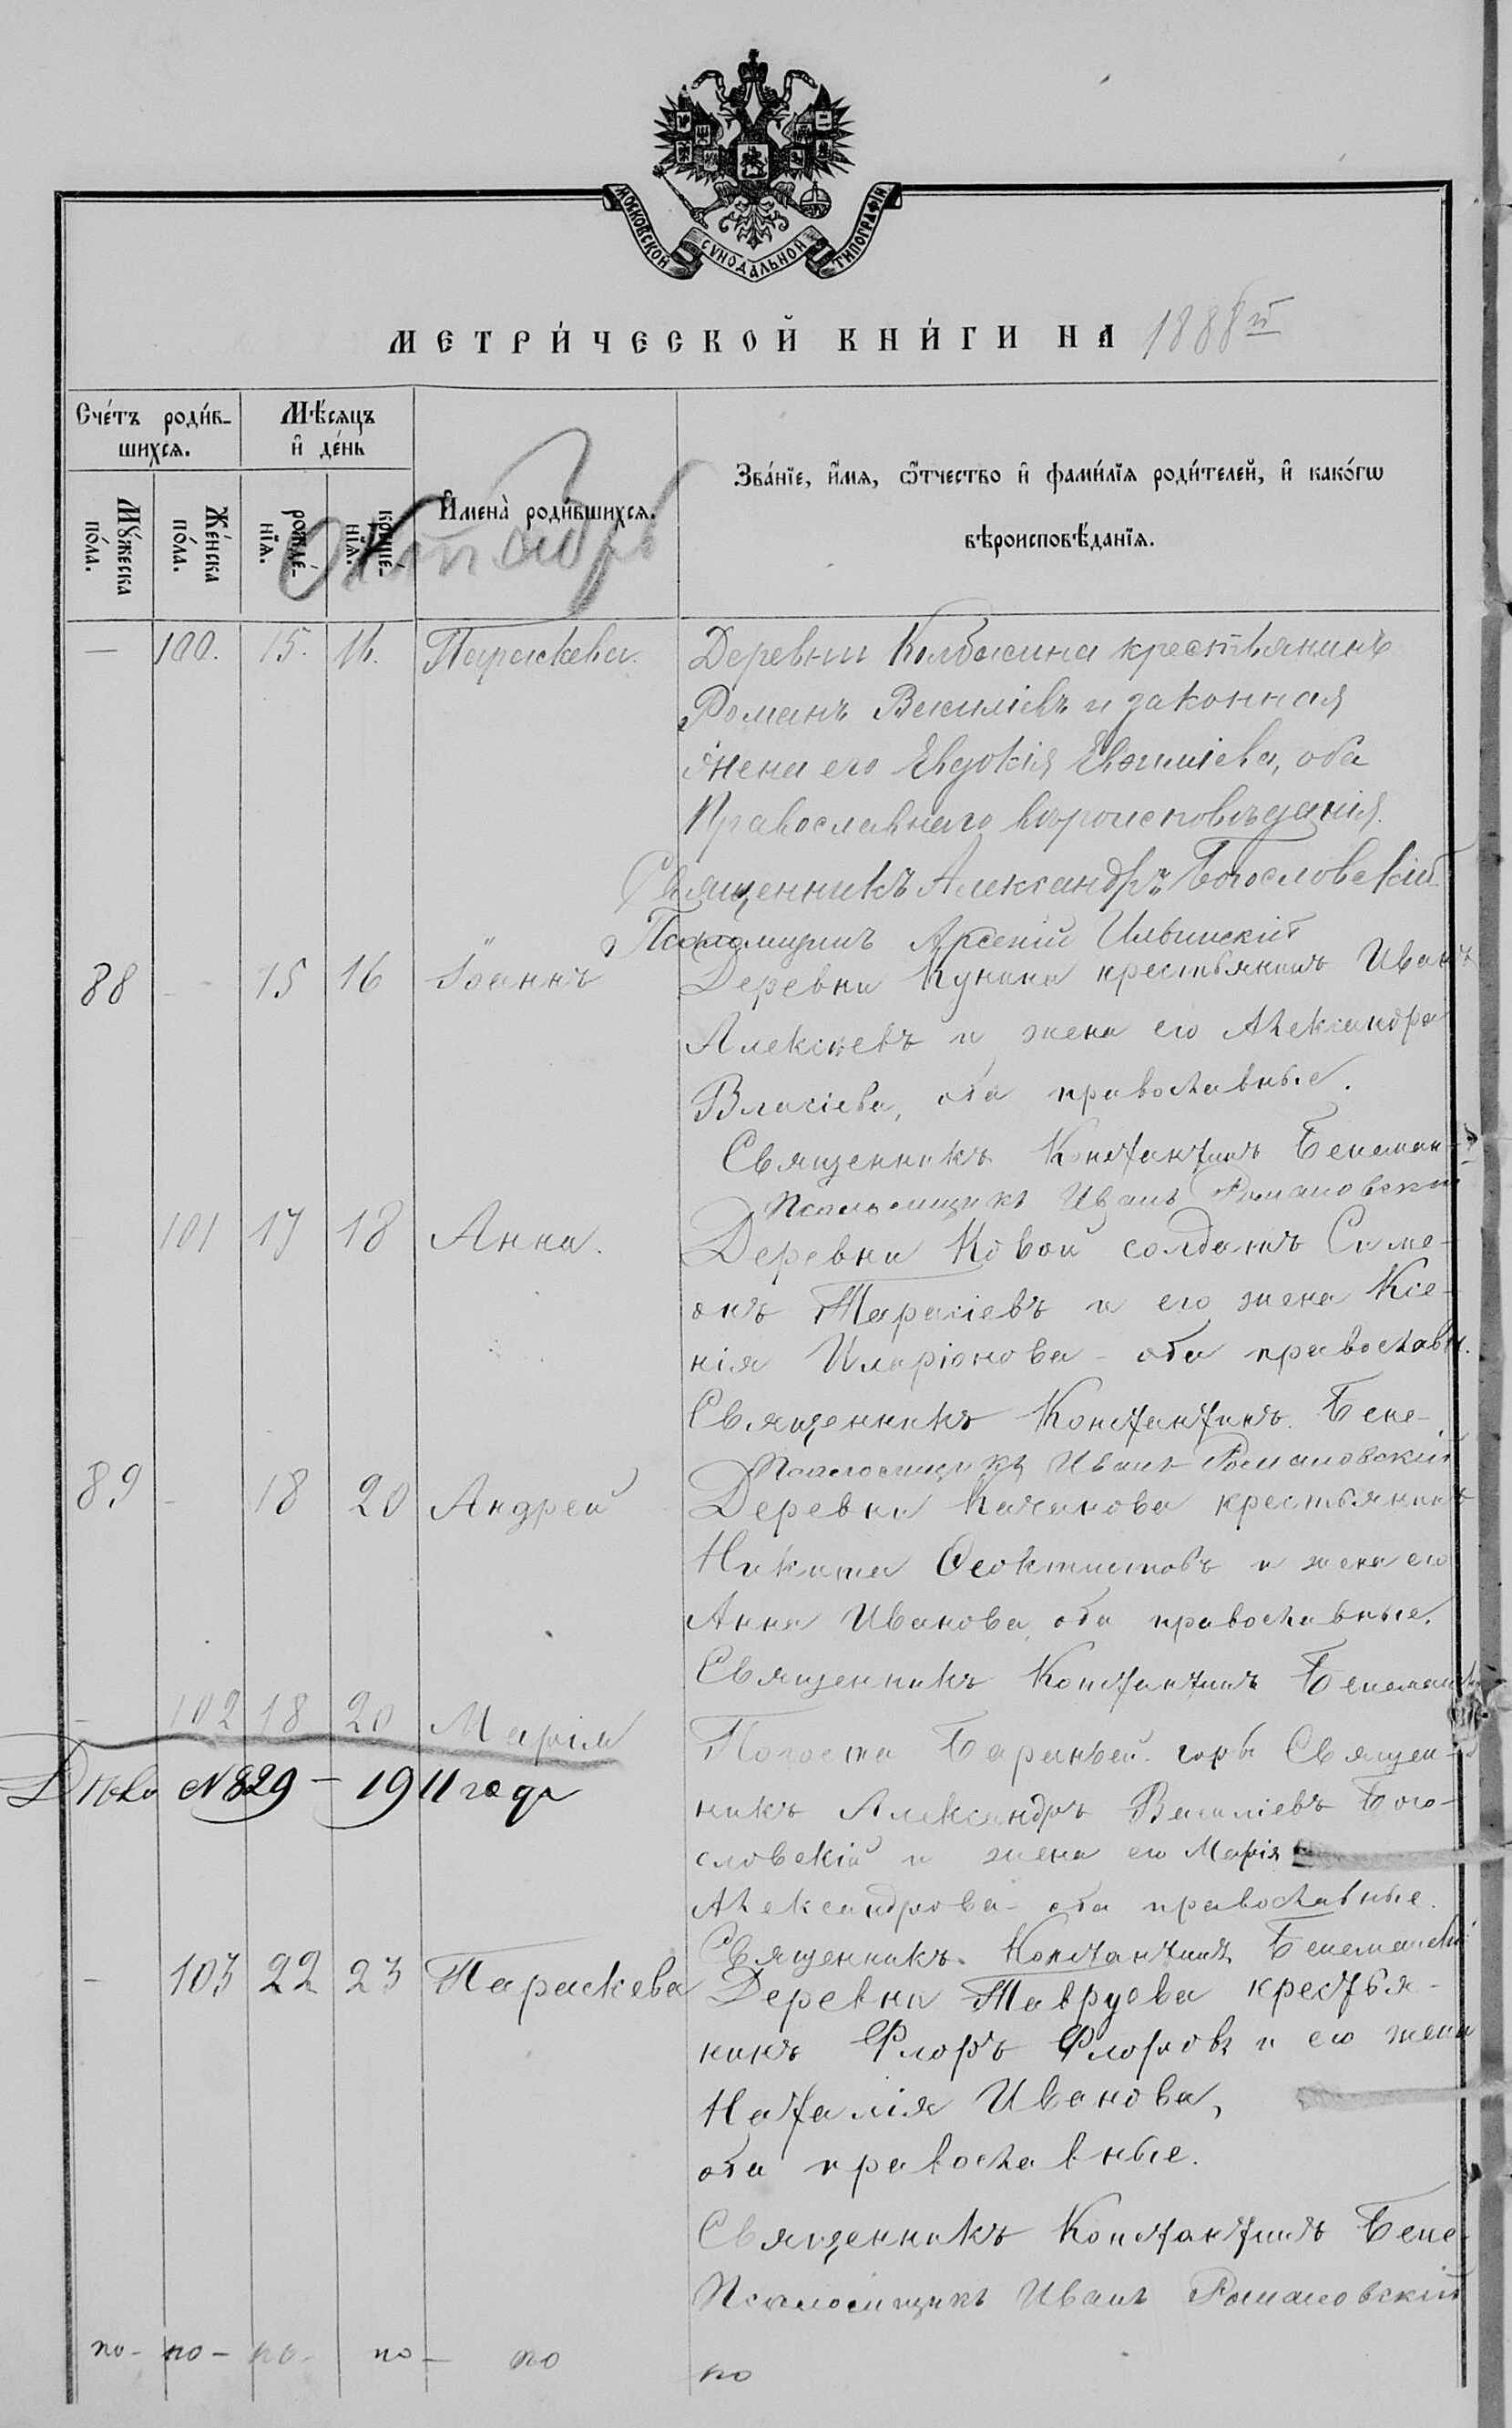 МОСКОВСКОЙ СѴНОДАЛЬНОЙ ТИПОГРАФІИ
МЕТРИ́ЧЕСКОЙ КНИ́ГИ НА 1888й
Сче́тъ роди́в-
шихсѧ.
Мѣ́сѧцъ
и҆ де́нь
Мꙋ́жеска по́ла.
Же́нска по́ла.
рожде́-
нїѧ.
креще́-
нїѧ.
И҆мена̀ роди́вшихсѧ.
Зва́нїе, и҆́мѧ, ѻ҆́тчество и҆ фами́лїѧ роди́телей, и҆ како́гѡ
вѣроисповѣ́данїѧ.
Октябрь
— 100. 15. 16. Параскева. Деревни Колбасина крестьянинъ
Романъ Васильевъ и законная
жена его Евдокія Евѳиміева, оба
Православнаго вѣроисповѣданія.
Священникъ Александръ Богословскій
Псаломщикъ Арсеній Ильинскій
88 - 15 16 Іоаннъ Деревни Кунина крестьянинъ Иванъ
Алексѣевъ и жена его Александра
Власіева, оба православные.
Священникъ Константинъ
Псаломщикъ Иванъ Романовскій
101 17 18 Анна. Деревни Новой солдатъ Симе-
онъ Тарасіевъ и его жена Ксе-
нія Иларіонова - оба православн.
Священникъ Константинъ
Псаломщикъ Иванъ Романовскій
89 - 18 20 Андрей Деревни Качанова крестьянинъ
Никита Ѳеоктистовъ и жена его
Анна Иванова, оба православные.
Священникъ Константинъ
- 102 18 20 Марія Погоста Бараньей-горы Священ-
Дѣло №829 - 1911 года
никъ Александръ Василіевъ Бого-
словскій и жена его Марія
Александрова - оба православные.
Священникъ Константинъ
- 103 22 23 Параскева Деревни Тавруева крестья-
нинъ Флоръ Флоровъ и его жена
Наталія Иванова,
оба православные.
Священникъ Константинъ
Псаломщикъ Иванъ Романовскій
по- по- по- по- по по